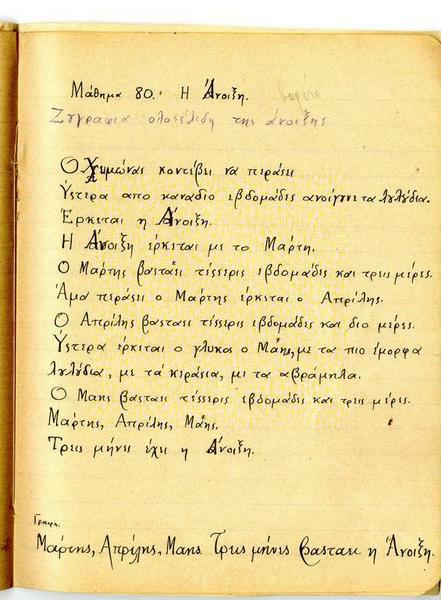 Μάθημα 80. Η Άνοιξη.
Ζγραφια ολοσέλιδη της άνοιξης
Ο Χειμώνας κοντέβει να περάσει
Ύστερα απο καναδιο εβδομάδες ανοίγνε τα λγλγδια.
Έρκεται η Άνοιξη.
Η Άνοιξη έρκεται με το Μάρτη.
Ο Μάρτης βαστάει τέσσερις εβδομάδες και τρεις μέρες.
Άμα περάσει ο Μάρτης έρκεται ο Απρίλης.
Ο Απρίλης βασταει τέσσερις εβδομάδες και διο μέρες.
Ύστερα έρκεται ο γλυκος ο Μάης, με τα πιο έμορφα
λγλγδια, με τα κεράσια, με τα αβράμηλα.
Ο Μαης βασταει τέσσερις εβδομάδες και τρεις μέρες.
Μάρτης, Απρίλης, Μάης.
Τρεις μήνες έχει η Άνοιξη.
Γραφη.
Μάρτης, Απρίλης, Μαης. Τρεις μήνες βασταει η Άνοιξη.